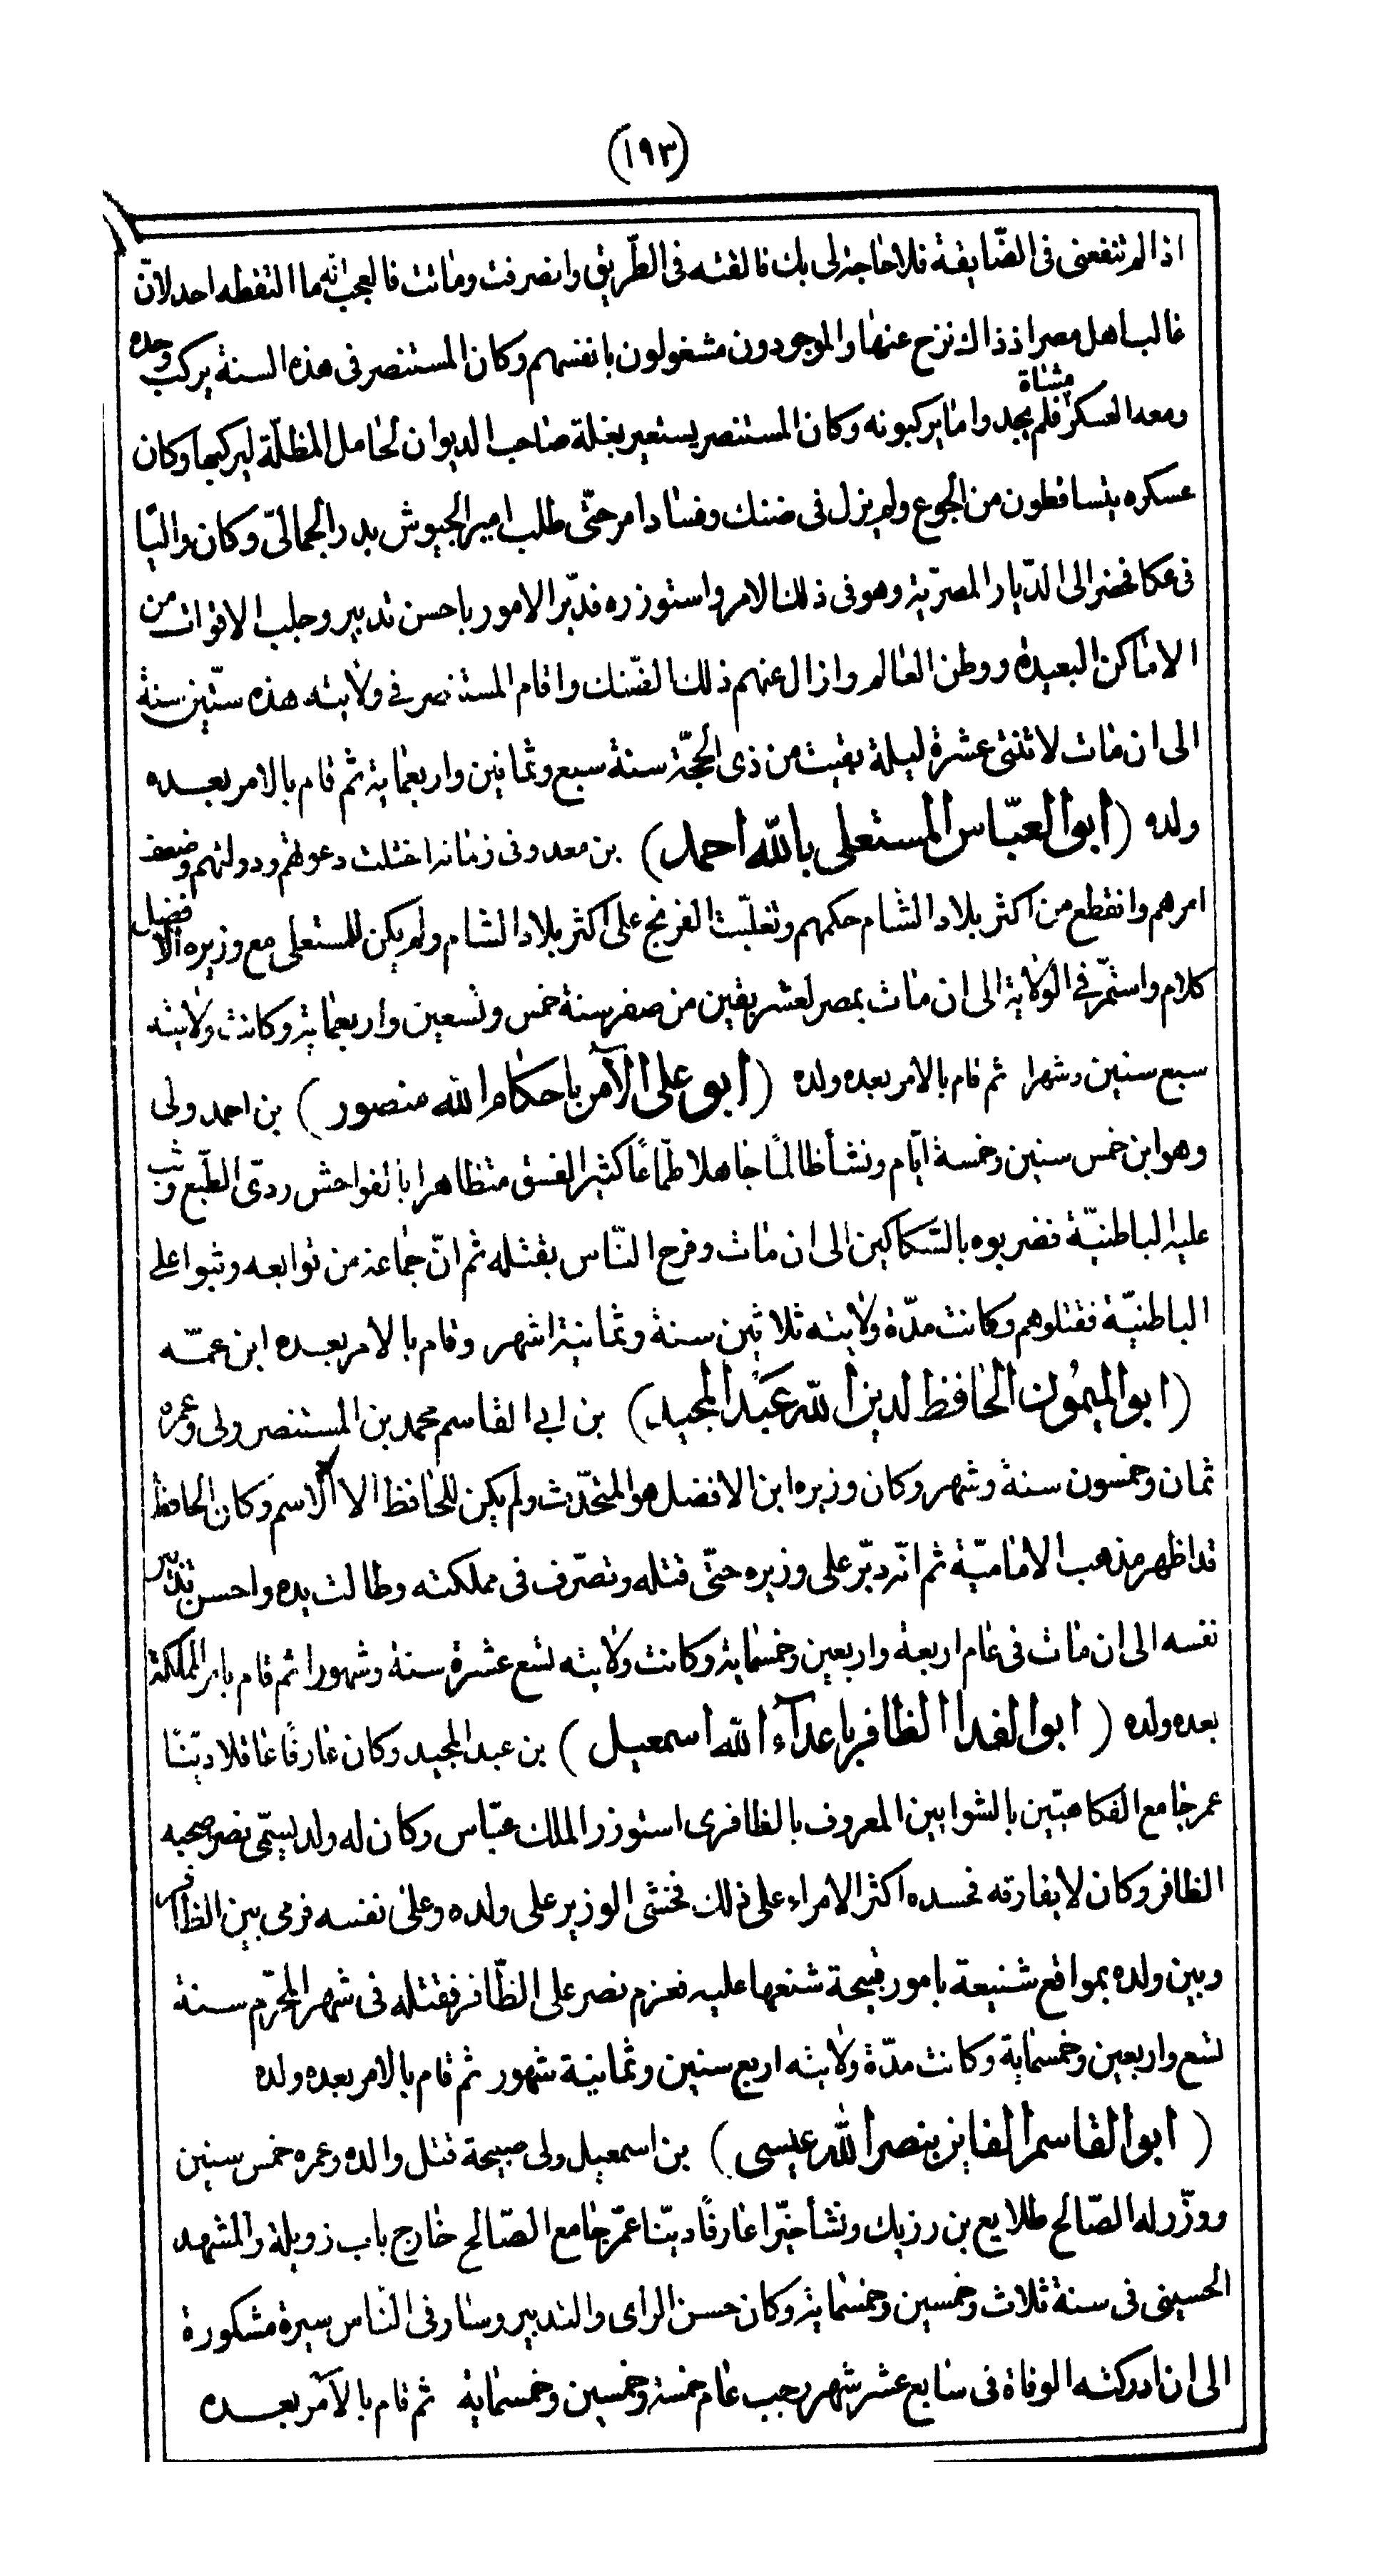 (١٩٣)
اذا لم تنفعنى فى الضّايقة فلا حاجة لى بك فالقته فى الطّريق وانصرفت وماتت فالعجب انّه ما التقطه احد لانّ
غالب اهل مصر اذ ذاك نزح عنها والموجودون مشغولون بانفسهم وكان المستنصر فى هذه السنة يركب وحده
ومعه العسكر مشاة فلم يجدوا ما يركبونه وكان المستنصر يستعير بغلة صاحب الديوان لحامل المظلّة ليركبها وكان
عسكره يتساقطون من الجوع ولم يزل فى ضنك وفساد امر حتّى طلب امير الجيوش بدر الجمالىّ وكان واليًا
فى عكا فحضر الى الدّيار المصرّية وهو فى ذلك الامر واستوزره فدبّر الامور باحسن تدبير وجلب الاقوات من
الاماكن البعيدة ووطن العالم وازال عنهم ذلك الضّنك واقام المستنصر فى ولايته هذه ستّين سنة
الى ان مات لاثنتى عشرة ليلة بقيت من ذى الحجّة سنة سبع وثمانين واربعماية ثم قام بالامر بعده
ولده (ابو العبّاس المستعلى بالله احمد) بن معد وفى زمانه اختلت دعوتهم ودولتهم وضعف
امرهم وانقطع من اكثر بلاد الشام حكمهم وتغلّبت الفرنج على اكثر بلاد الشام ولم يكن للمستعلى مع وزيره الافضل
كلام واستمّر فى الولاية الى ان مات بمصر لعشر بقين من صفر سنة خمس وتسعين واربعماية وكانت ولايته
سبع سنين وشهرا ثم قام بالامر بعده ولده (ابو على الآمر باحكام الله منصور) بن احمد ولى
وهو ابن خمس سنين وخمسة ايّام ونشأ ظالمًا جاهلا طمّاعًا كثير الفسق متظاهرا بالفواحش ردىّ الطّبع وثب
عليه الباطنيّة فضربوه بالسّكاكين الى ان مات وفرح النّاس بقتله ثم انّ جماعة من توابعه وثبوا على
الباطنيّة فقتلوهم وكانت مدّة ولايته ثلاثين سنة وثمانية اشهر وقام بالامر بعده ابن عمّه
(ابو الميمون الحافظ لدين الله عبد المجيد) بن ابى القاسم محمد بن المستنصر ولى وعمره
ثمان وخمسون سنة وشهر وكان وزيره ابن الافضل هو المتحدّث ولم يكن للحافظ الا الاسم وكان الحافظ
قد اظهر مذهب الاماميّة ثم انّه دبّر على وزيره حتّى قتله وتصرّف فى مملكته وطالت يده واحسن تدبير
نفسه الى ان مات فى عام اربعة واربعين وخمسماية وكانت ولايته تسع عشرة سنة وشهورا ثم قام بامر المملكة
بعده ولده (ابو الفدا الظافر باعدآء الله اسمعيل) بن عبد المجيد وكان عارفًا عاقلا ديّنًا
عمر جامع الفكاهيّين بالشوايين المعروف بالظافرى استوزر الملك عبّاس وكان له ولد يسمّى نصر صحبه
الظافر وكان لا يفارقه فحسده اكثر الامراء على ذلك فخشى الوزير على ولده وعلى نفسه فرمى بين الظافر
وبين ولده بمواقع شنيعة بامور قبيحة شنعها عليه فعزم نصر على الظّافر فقتله فى شهر المحرّم سنة
تسع واربعين وخمسماية وكانت مدّة ولايته اربع سنين وثمانية شهور ثم قام بالامر بعده ولده
(ابو القاسم الفايز بنصر الله عيسى) بن اسمعيل ولى صبيحة قتل والده وعمره خمس سنين
ووزّر له الصّالح طلايع بن رزيك ونشأ خيّرا عارفًا ديّنا عمّر جامع الصّالح خارج باب زويلة والمشهد
الحسينى فى سنة ثلاث وخمسين وخمسماية وكان حسن الراى والتدبير وسار فى النّاس سيرة مشكورة
الى ان ادركته الوفاة فى سابع عشر شهر رجب عام خمسة وخمسين وخمسماية ثم قام بالامر بعده